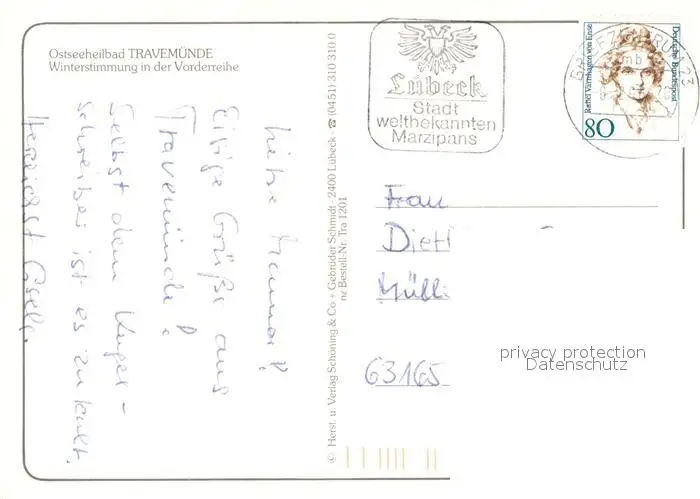 Ostseeheilbad TRAVEMÜNDE
Winterstimmung in der Vorderreihe
Lübeck
Stadt
weltbekannten
Marzipans
Deutsche Bundespost
Rahel Varnhagen von Ense
80
23
mb
Liebe
Eisige Grüße aus
Travemünde!
Selbst dem Kugel-
schreiber ist es zu kalt.
Herzlichst Gisela.
© Herst. u. Verlag Schöning & Co + Gebrüder Schmidt · 2400 Lübeck · ☎ (0451) 310 310 0
nz Bestell-Nr. Tra 1201
Frau
Diet
Mühl
63165
privacy protection
Datenschutz